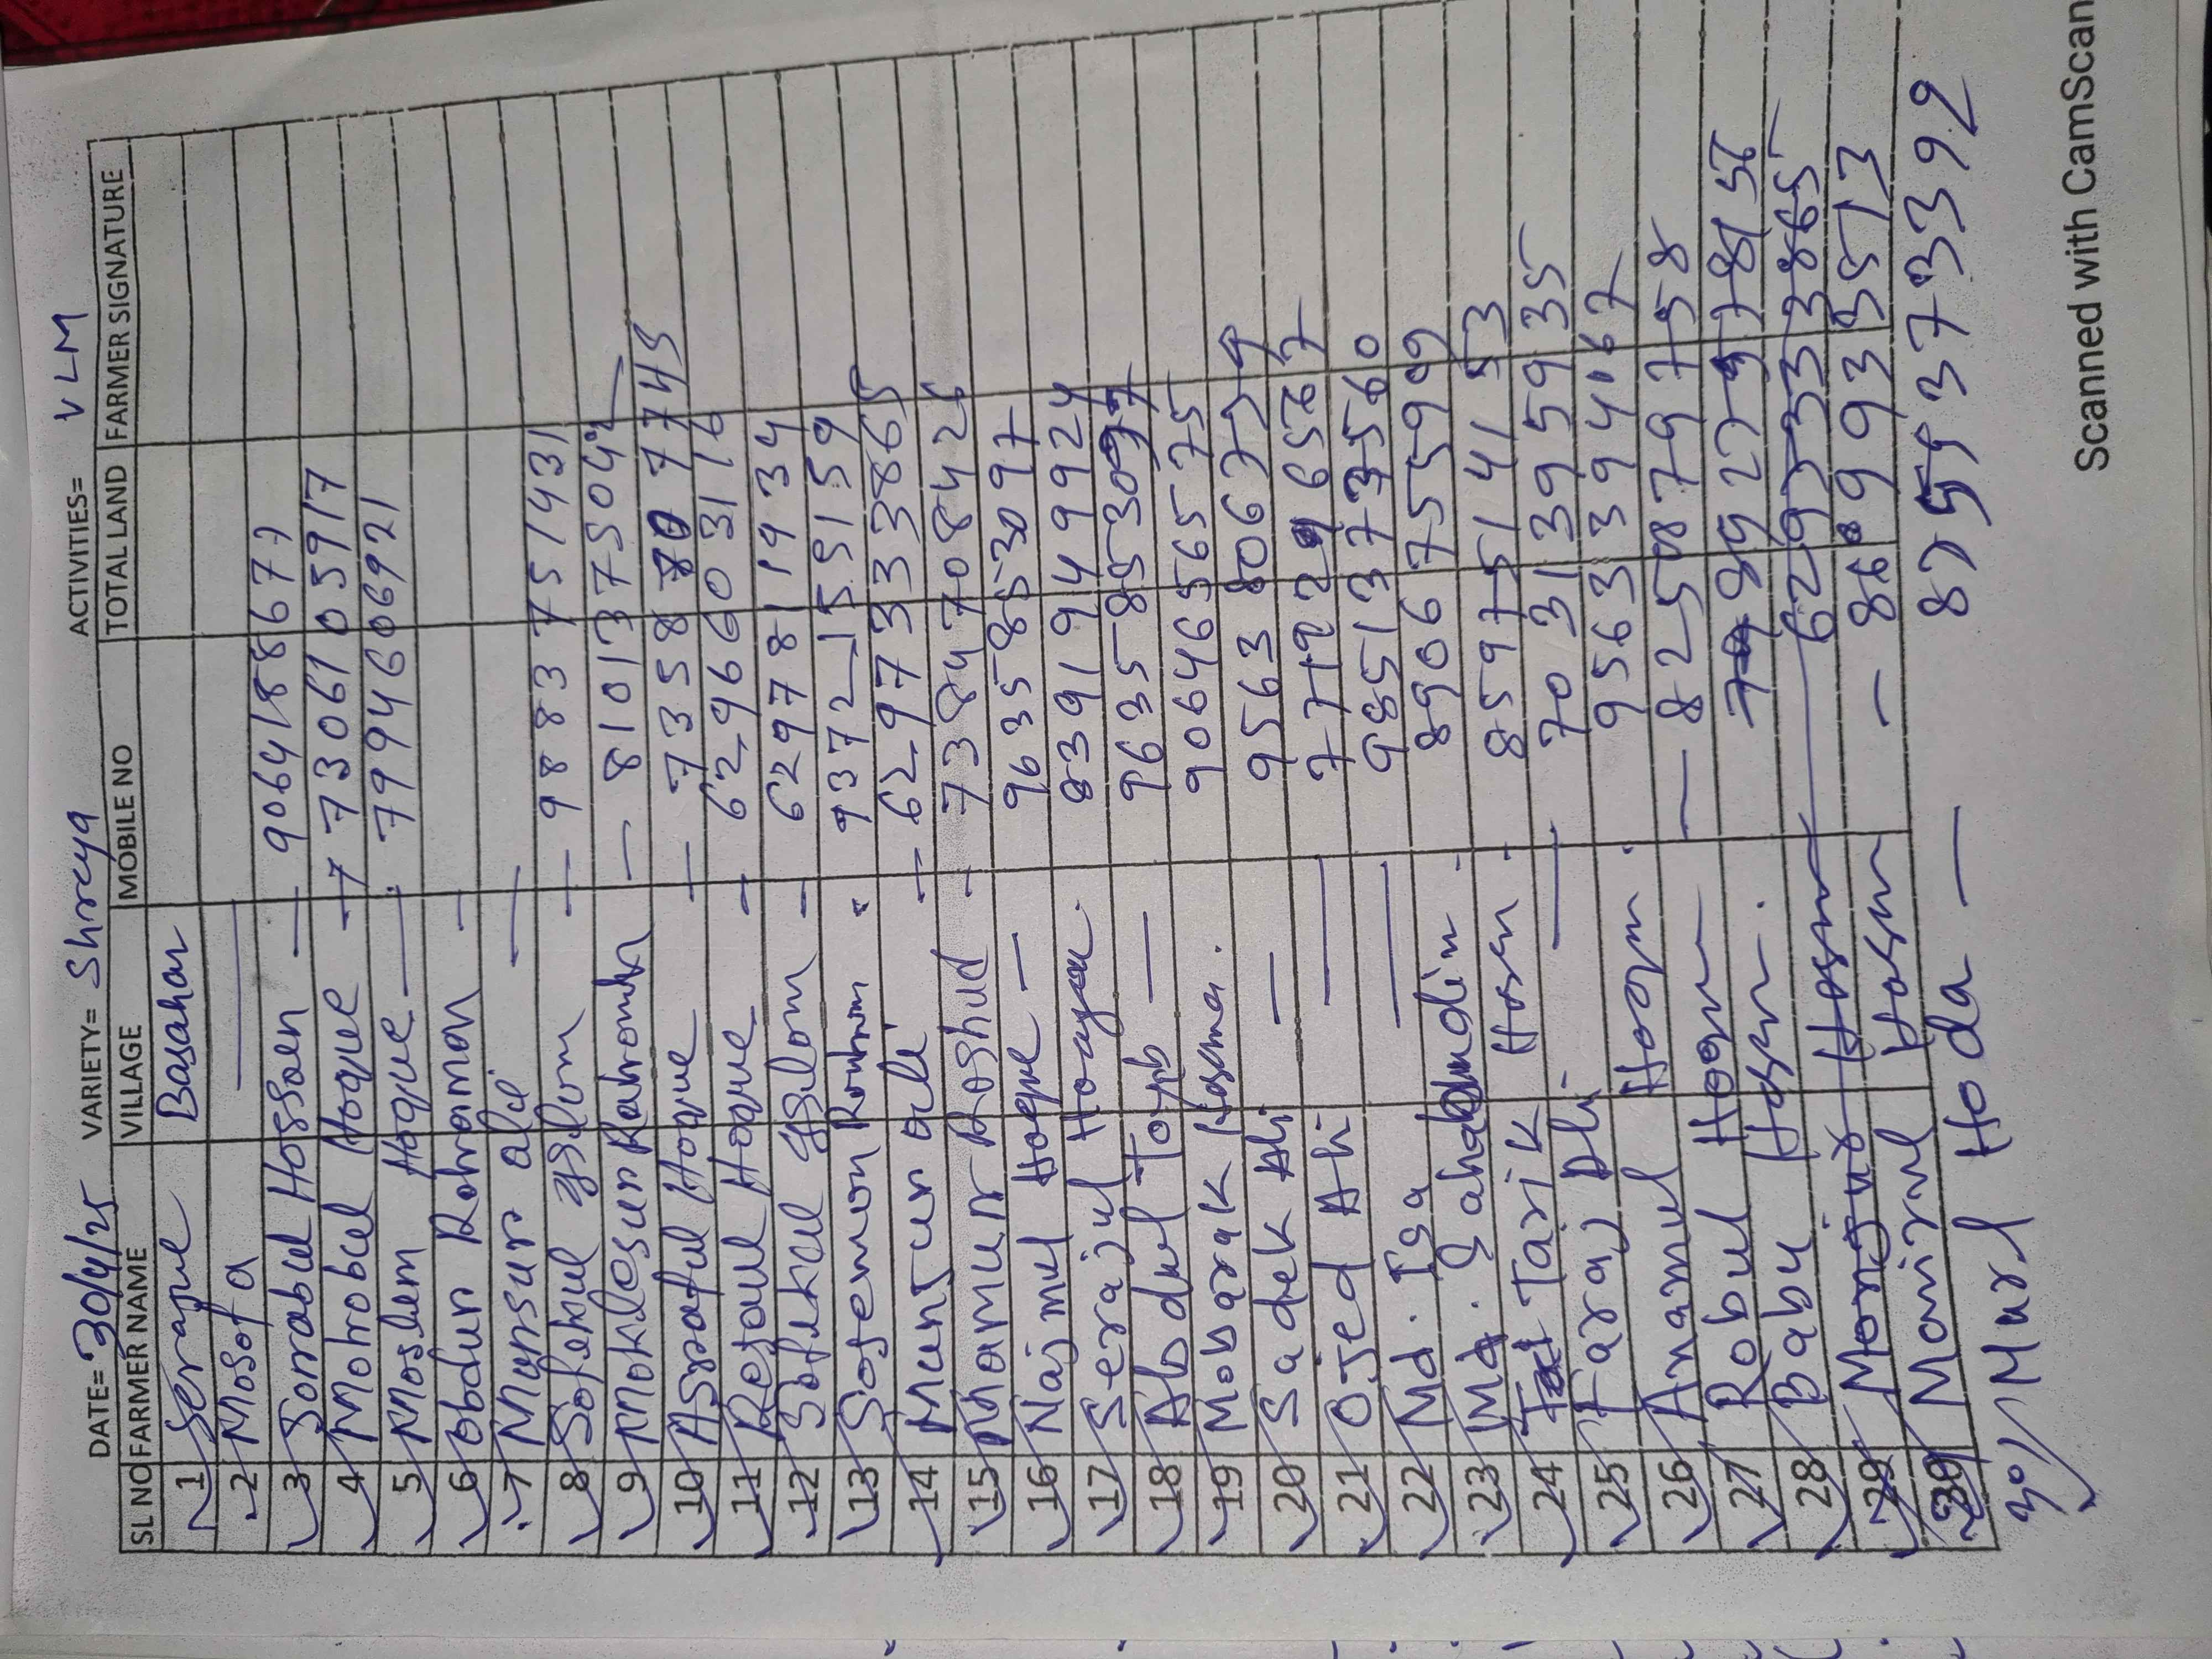 DATE= 30/4/25 VARIETY= Shreya ACTIVITIES= VLM
SL NO FARMER NAME VILLAGE MOBILE NO TOTAL LAND FARMER SIGNATURE
1 Serajue Basahar
2 Mosofa —
3 Sorrabul Hossaen — 9064188677
4 Motrobul Hoque — 7306105917
5 Moslem Hoque — 7994606921
6 Obdur Rohoman —
7 Mynsur ali —
8 Sofekul Islom — 9883751431
9 Moklesur Rahoman — 8101375042
10 Asraful Hoque — 7358707745
11 Refaul Hoque — 6296603116
12 Sofikul Islom — 6297811934
13 Solemon 9372155159
14 Munsur ali — 6297333865
15 Mamur Roshid — 7384708426
16 Najmul Hoque — 9635853097
17 Serajul 8391949924
18 Abdul Toyb — 9635853097
19 Mobarak 9064656575
20 Sadek Ali — 9563806759
21 Ojed Ali — 7719296567
22 Md. Isa — 9851373560
23 Md. Sahabuddin 8906755999
24 Tarik Hosen 8597514153
25 Faraj Ali — 7031395935
26 Anamul 9563394067
27 Robul — 8250879758
28 Babu Hosen.
29 — 6293333865
30 — 8609933513
30/ Murl Hoda — 8759373392
Scanned with CamScan